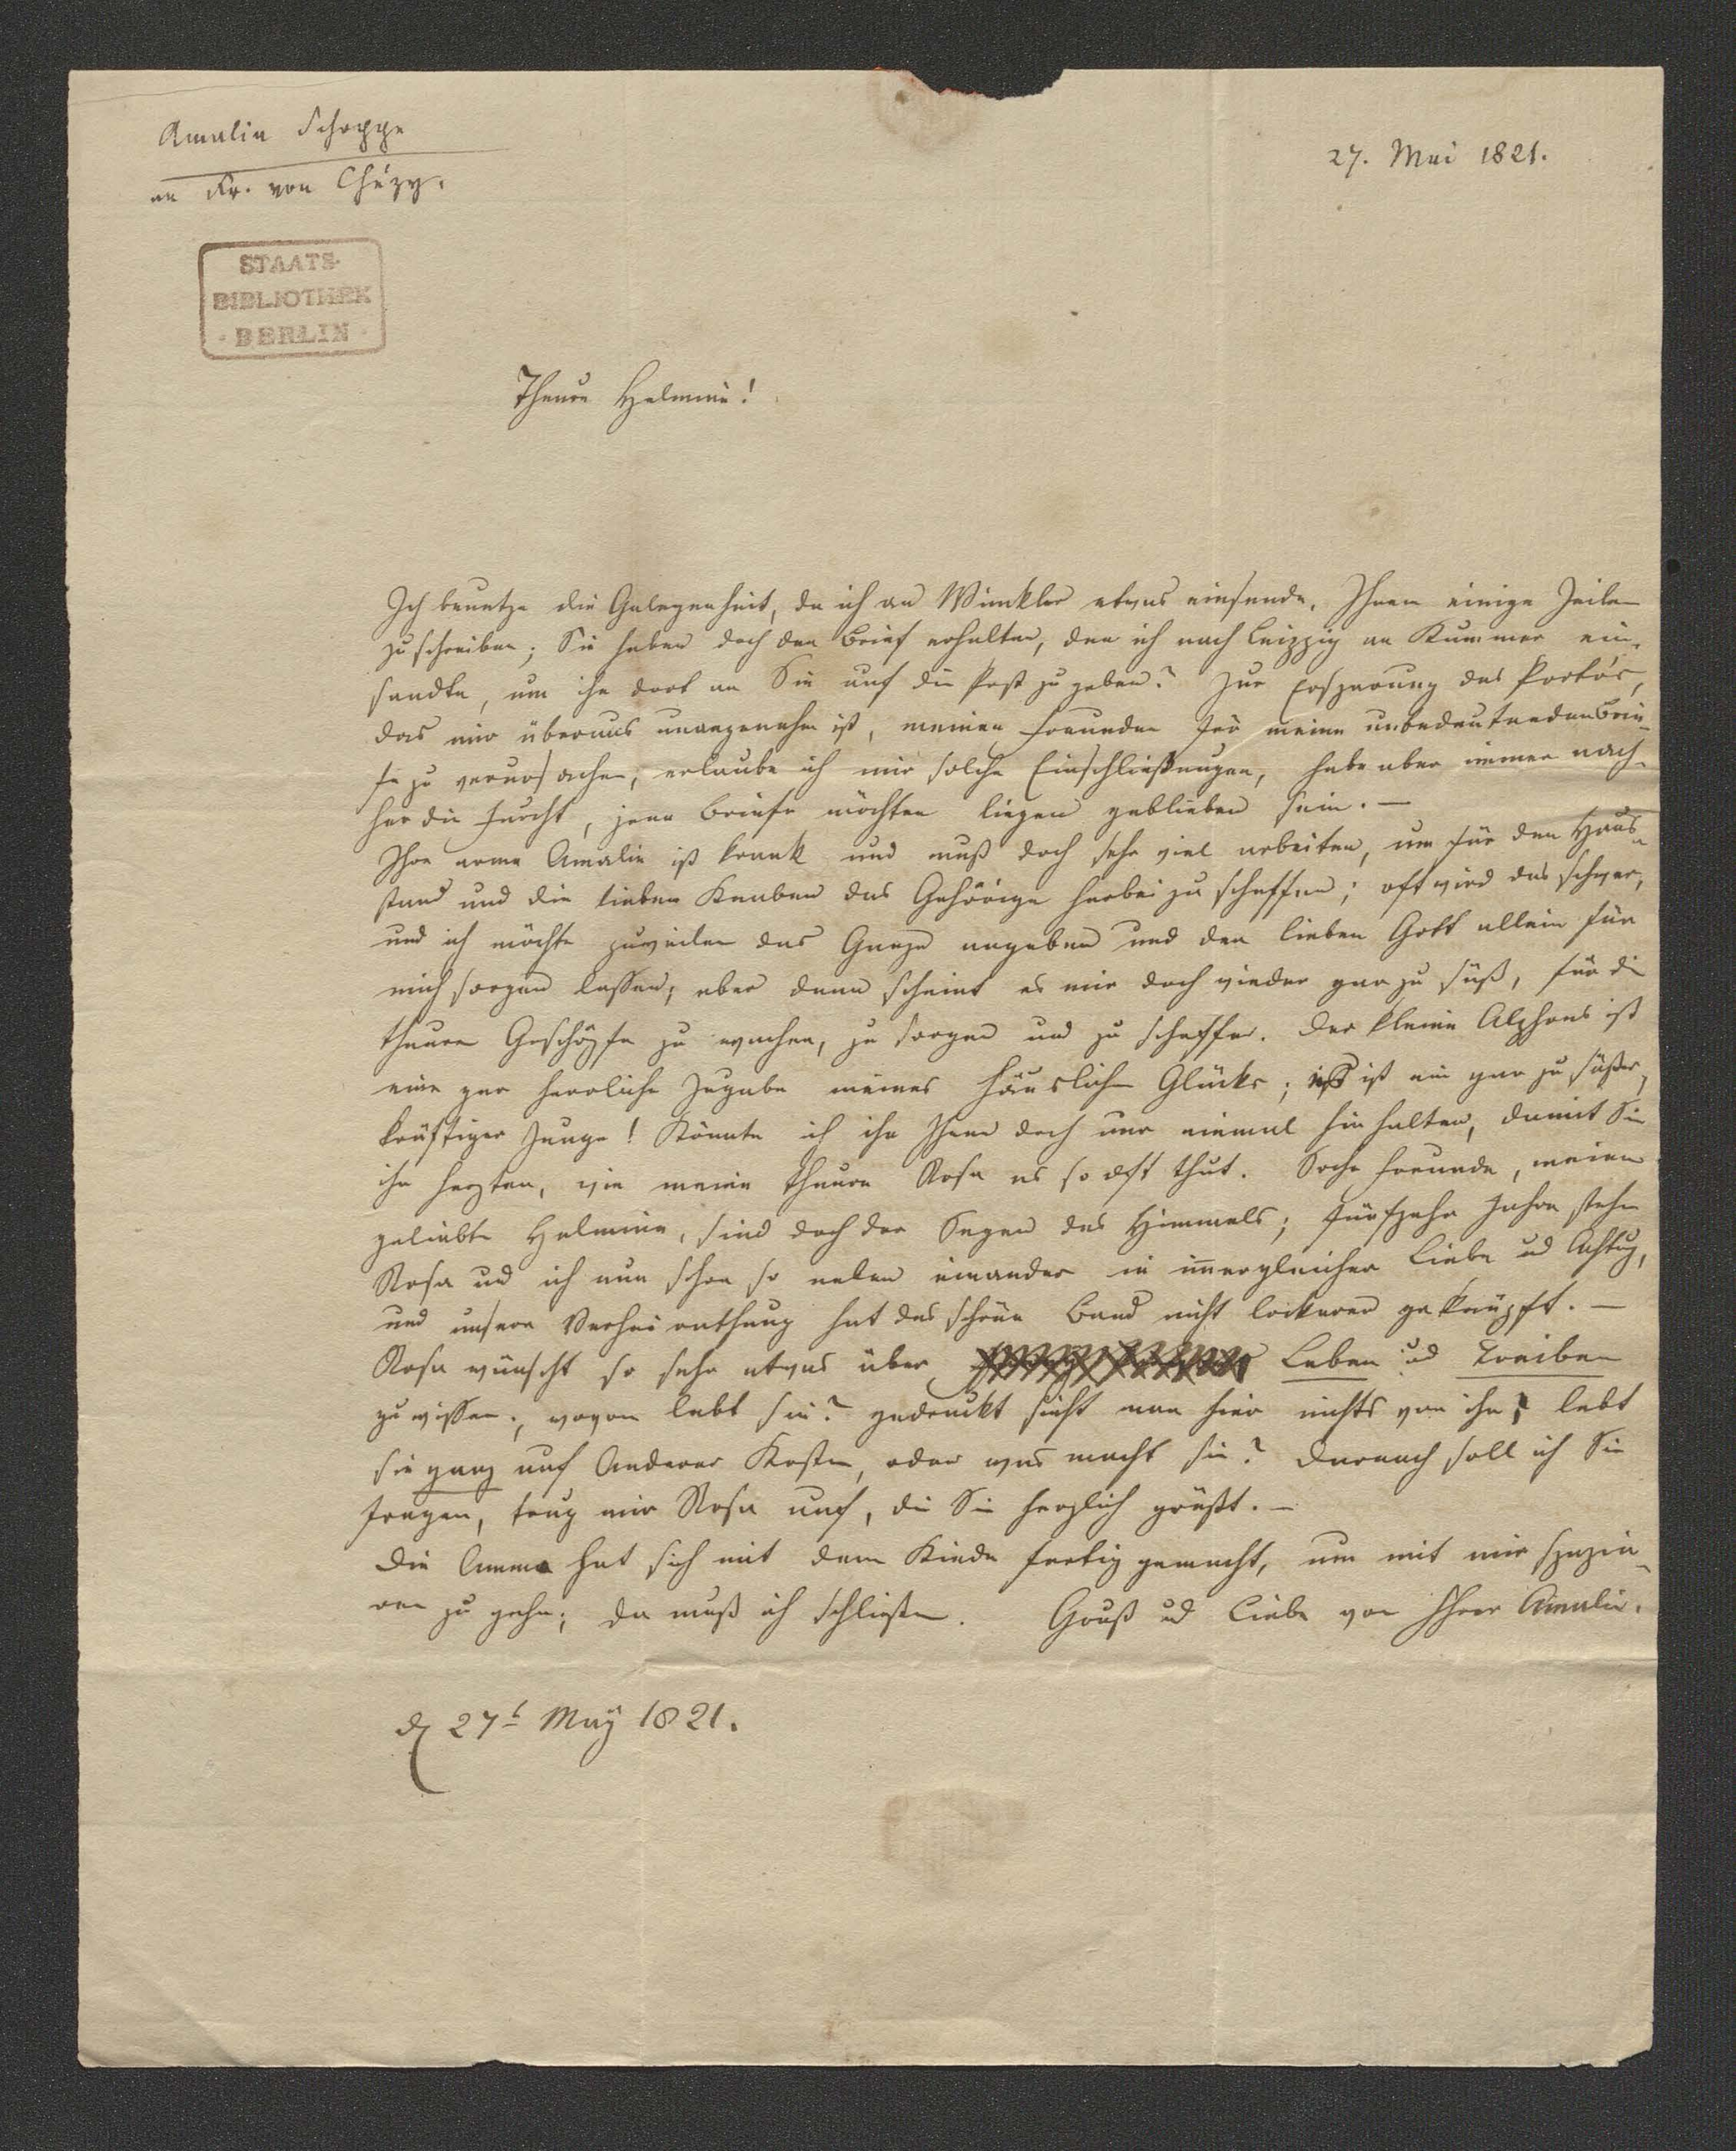 Amalie Schoppe
an Fr. von Chézy.
27. Mai 1821.
STAATS-
BIBLIOTHEK
· BERLIN ·
Theure Helmine!
Ich benutze die Gelegenheit, da ich an Winkler etwas einsende, Ihnen einige Zeilen
zu schreiben; Sie haben doch den Brief erhalten, den ich nach Leipzig an Kummer ein-
sandte, um ihn dort an Sie auf die Post zu geben? Zur Ersparung des Porto's,
das mir überaus unangenehm ist, meinen Freunden für meine unbedeutenden Brie-
fe zu verursachen, erlaube ich mir solche Einschließungen, habe aber immer nach-
her die Furcht, jene Briefe möchten liegen geblieben sein. —
Ihre arme Amalie ist krank und muß doch sehr viel arbeiten, um für den Haus-
stand und die lieben Knaben das Gehörige herbei zu schaffen; oft wird das schwer,
und ich möchte zuweilen das Ganze angeben und den lieben Gott allein für
mich sorgen lassen; aber dann scheint es mir doch wieder gar zu süß, für die
theuren Geschöpfe zu wachen, zu sorgen und zu schaffen. Der kleine Alphons ist
eine gar herrliche Zugabe meines häuslichen Glücks; ist ein gar zu süßer,
kräftiger Junge! Könnte ich ihn Ihnen doch nur einmal hinhalten, damit Sie
ihn herzten, wie meine theure Rosa es so oft thut. Solche Freunde, meine
geliebte Helmine, sind doch der Segen des Himmels; fünfzehn Jahre stehn
Rosa und ich nun schon so neben einander in immergleicher Liebe und Achtung,
und unsere Verheirathung hat das schöne Band nicht lockerer geknüpft. —
Rosa wünscht so sehr etwas über Leben und Treiben
zu wissen; wovon lebt sie? gedruckt sieht man hier nichts von ihr; lebt
sie ganz auf Anderer Kosten, oder was macht sie? Darnach soll ich Sie
fragen, trug mir Rosa auf, die Sie herzlich grüßt. —
Die Amme hat sich mit dem Kinde fertig gemacht, um mit mir spazie-
ren zu gehn; da muß ich schließen. Gruß und Liebe von Ihrer Amalie.
d 27t May 1821.